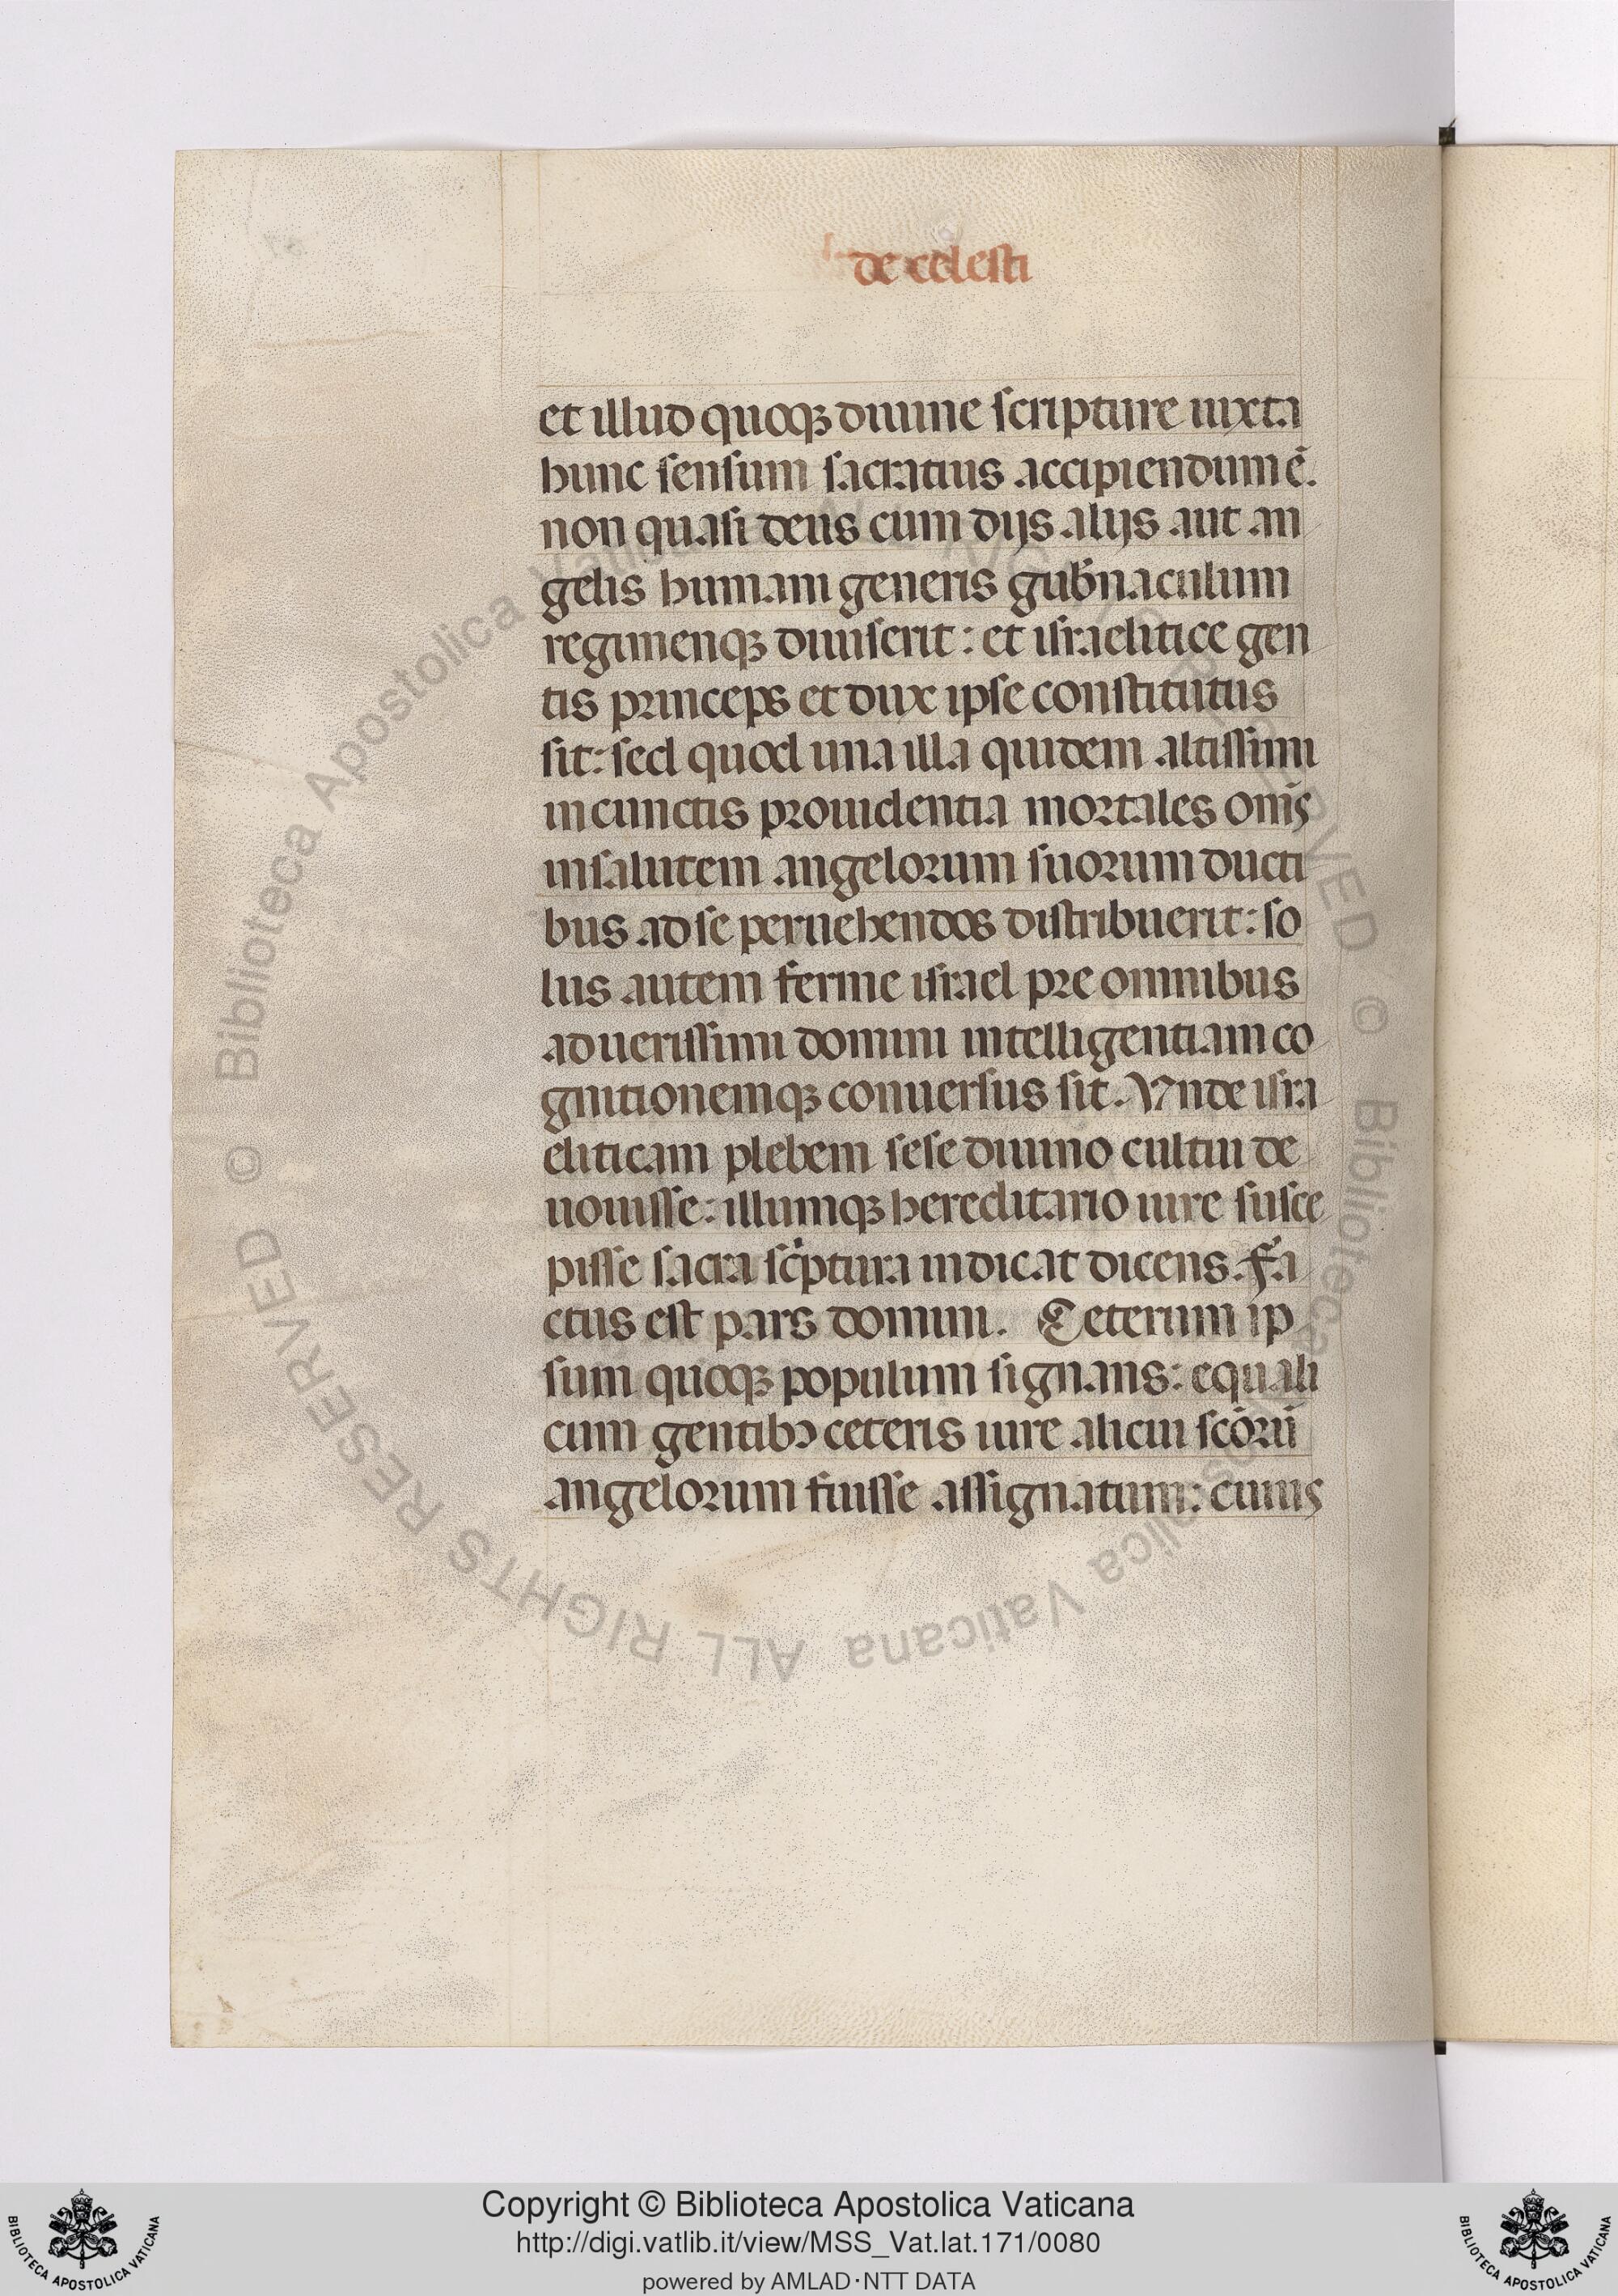 de celesti
et illud quoqꝫ diuine scripture iuxta
hunc sensum sacratius accipiendum ē.
non quasi deus cum dijs alijs aut an
gelis humani generis gub̄naculum
regimenqꝫ diuiserit: et israelitice gen
tis princeps et dux ipse constitutus
sit: sed quod una illa quidem altissimi
in cunctis prouidentia mortales om̄s
in salutem angelorum suorum ducti
bus ad se peruehendos distribuerit: so
lus autem ferme israel pre omnibus
ad uerissimi domini intelligentiam co
gnitionemqꝫ conuersus sit. Vnde isra
eliticam plebem sese diuino cultui de
uouisse: illumqꝫ hereditario iure susce
pisse sacra sc̍ptura indicat dicens. Fa
ctus est pars domini. Ceterum ip
sum quoqꝫ populum signans: equali
cum gentibꝫ ceteris iure alicui sc̄orū
angelorum fuisse assignatum: cuius
Copyright © Biblioteca Apostolica Vaticana
http://digi.vatlib.it/view/MSS_Vat.lat.171/0080
powered by AMLAD·NTT DATA
BIBLIOTECA APOSTOLICA VATICANA
BIBLIOTECA APOSTOLICA VATICANA
© Biblioteca Apostolica Vaticana ALL RIGHTS RESERVED © Biblioteca Apostolica Vaticana ALL RIGHTS RESERVED